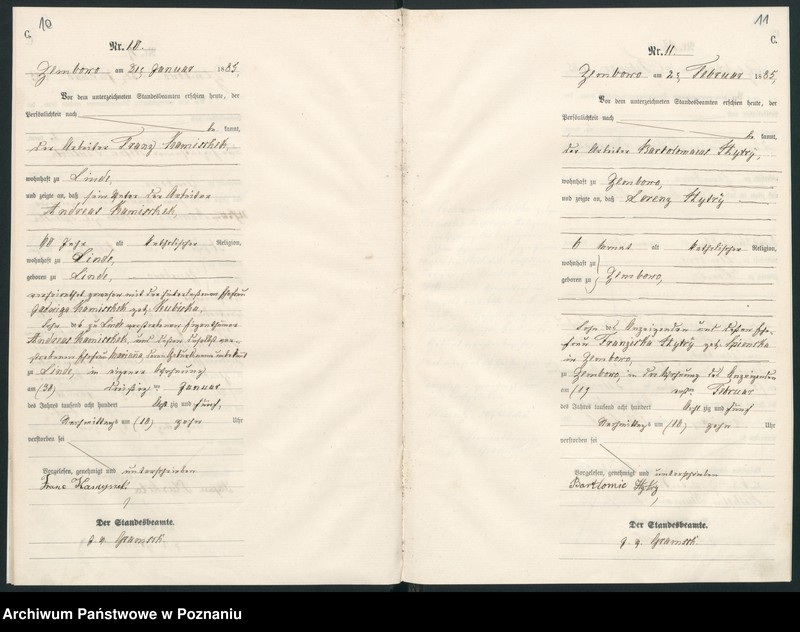 10
C.
Nr. 10.
Zembowo am 31 Januar 1885.
Vor dem unterzeichneten Standesbeamten erschien heute, der
Persönlichkeit nach
be kannt,
der Arbeiter Franz Kamischek,
wohnhaft zu Linde,
und zeigte an, daß sein Vater der Arbeiter
Andreas Kamischek,
60 Jahr alt katholischer Religion,
wohnhaft zu Linde,
geboren zu Linde,
verheirathet gewesen mit der hinterlassenen Ehefrau
Hedwiga Kamischek geb. Kubicka,
Sohn des zu Linde verstorbenen Eigenthümer
Andreas Kamischek, und dessen daselbst ver-
storbenen Ehefrau Mariana,
zu Linde, in eigener Wohnung
am (30) dreißigten Januar
des Jahres tausend acht hundert Acht zig und fünf,
Nachmittags um (10) zehn Uhr
verstorben sei
Vorgelesen, genehmigt und unterschrieben
Franc
Der Standesbeamte.
11
C.
Nr. 11.
Zembowo am 2 Februar 1885,
Vor dem unterzeichneten Standesbeamten erschien heute, der
Persönlichkeit nach
be kannt,
der Arbeiter Bartolomaeus Hytry,
wohnhaft zu Zembowo,
und zeigte an, daß Lorenz Hytry
6 Monat alt katholischer Religion,
wohnhaft zu
geboren zu Zembowo,
Sohn des Anzeigenden und dessen Ehe-
frau Franziska Hytry geb.
in Zembowo,
zu Zembowo, in der Wohnung des Anzeigenden
am (1) ersten Februar
des Jahres tausend acht hundert Acht zig und fünf
Nachmittags um (10) zehn Uhr
verstorben sei
Vorgelesen, genehmigt und unterschrieben
Bartlomie Hytry
Der Standesbeamte.
Archiwum Państwowe w Poznaniu